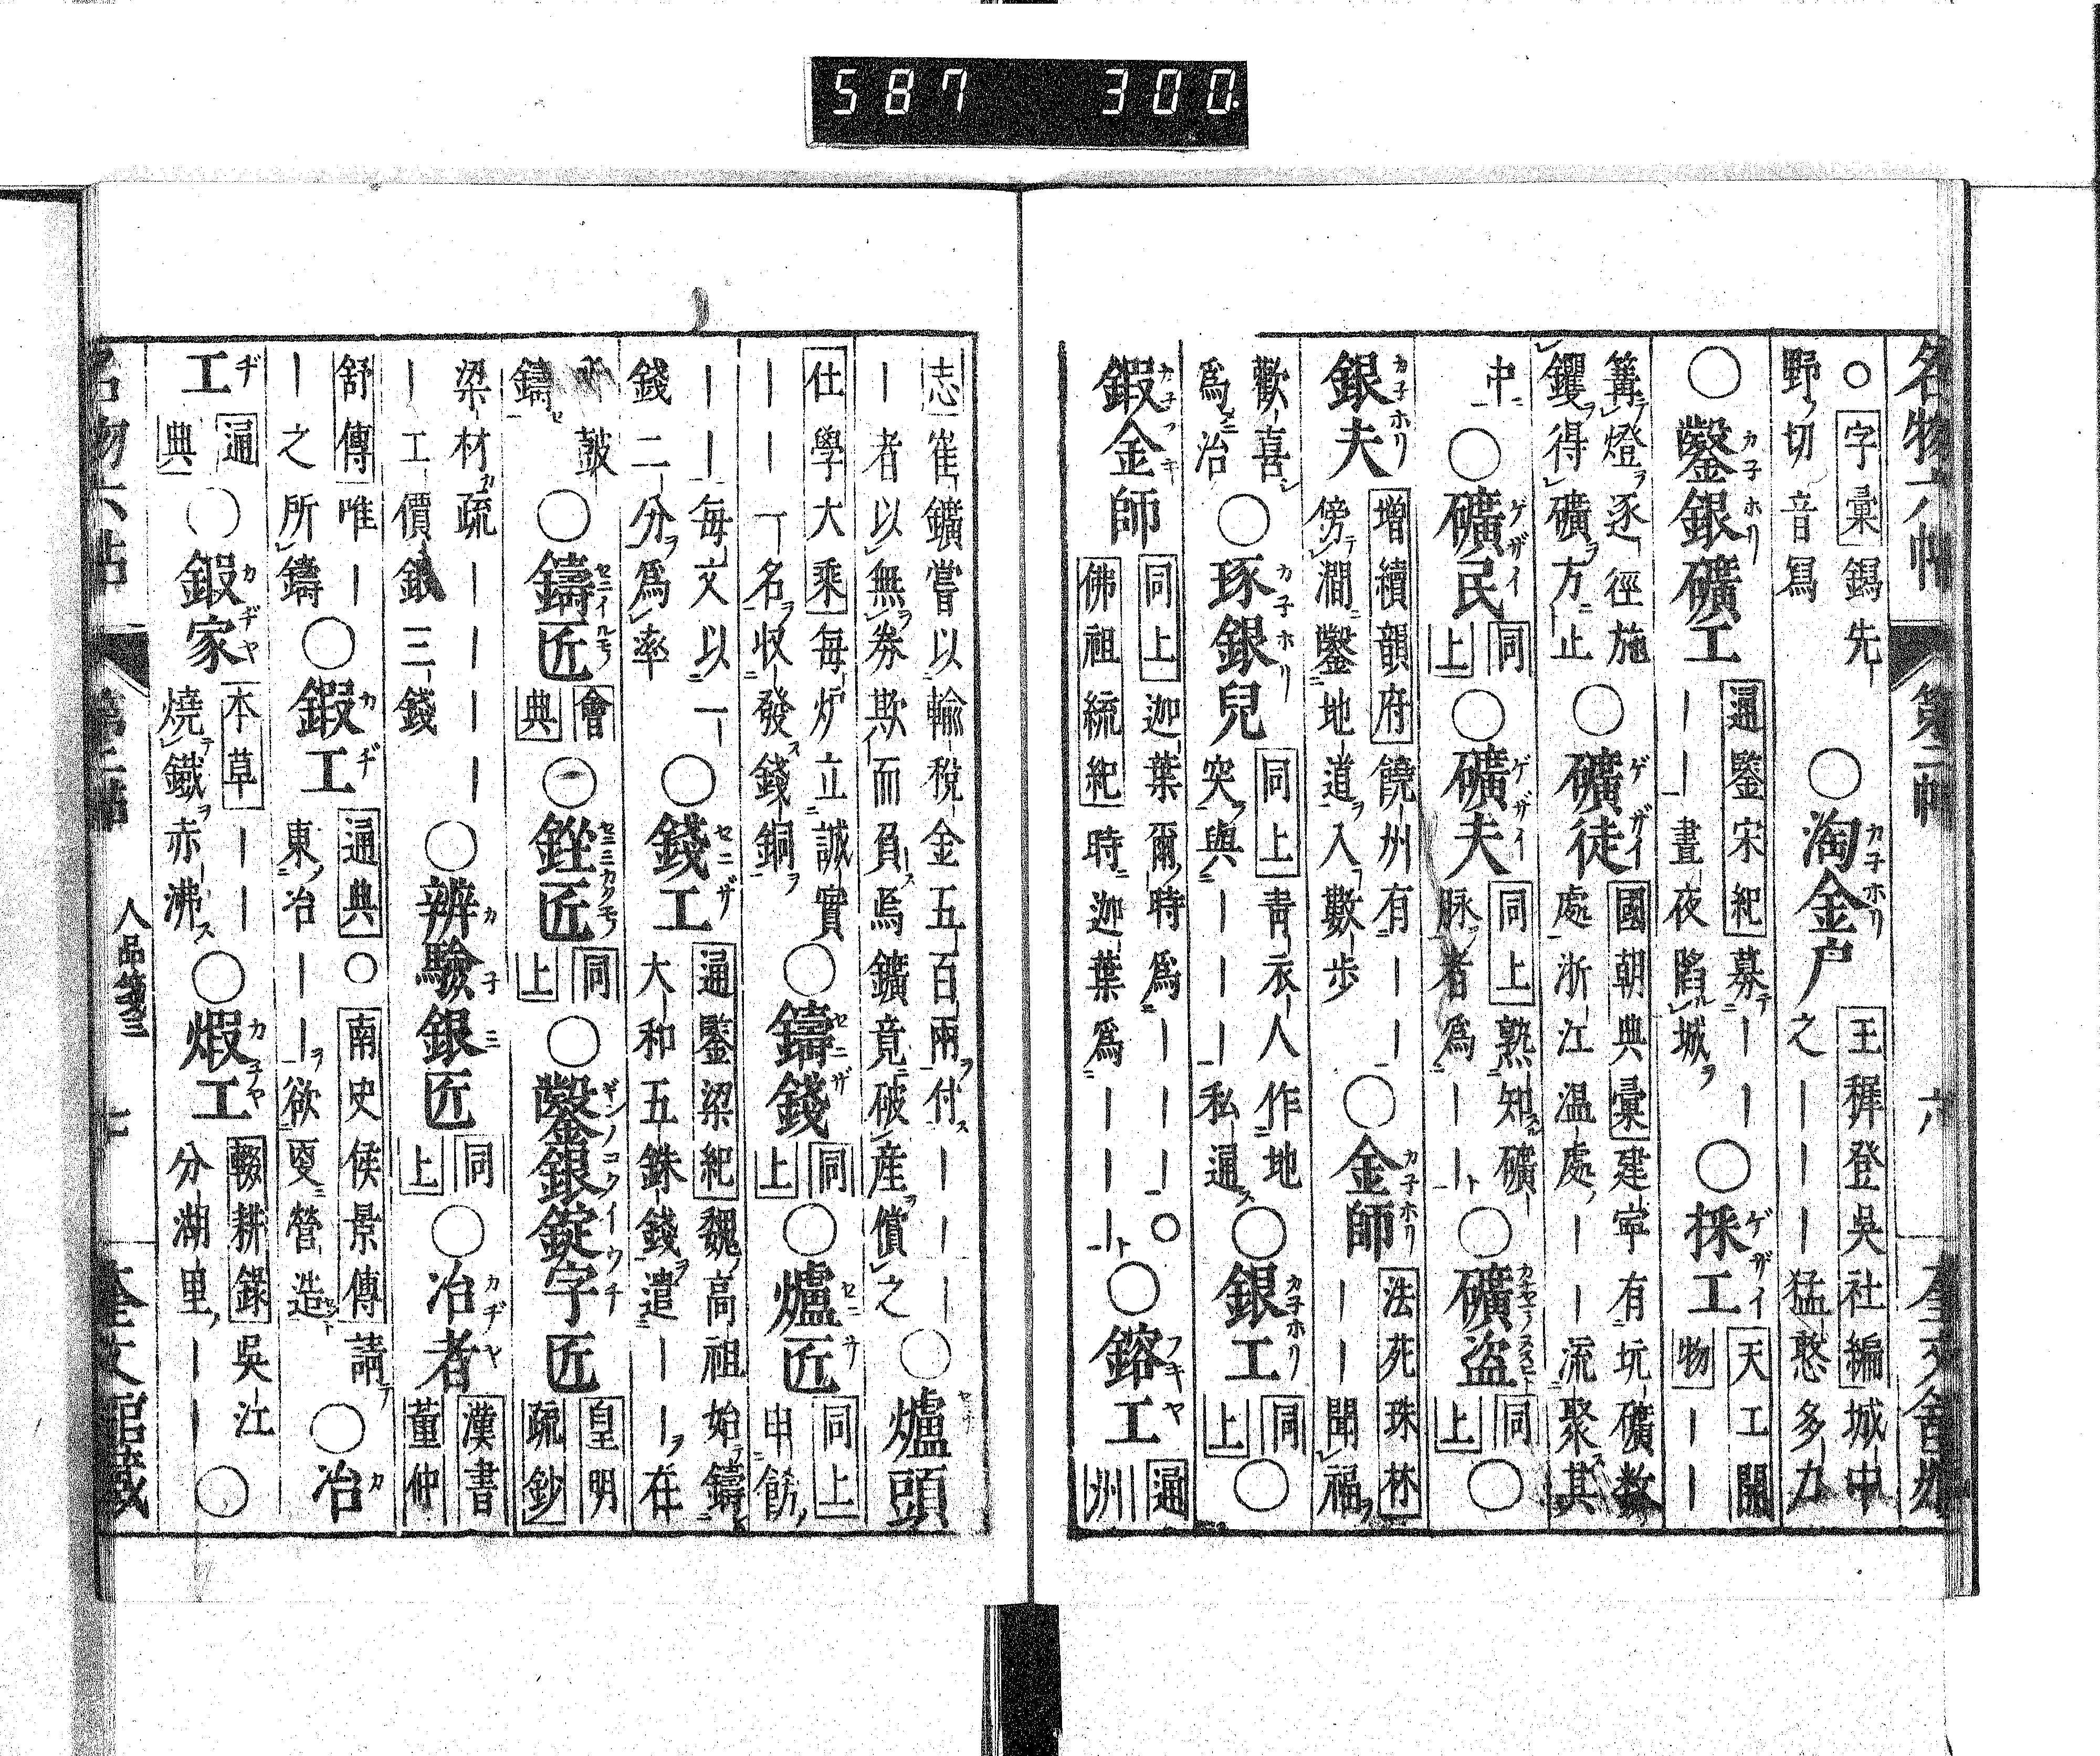 名物六帖 第二帖 六 奎文
○字彙 先野切音寫○淘金户王穉登吳社編城中之———猛憨多力
○鑿銀礦工通鑒宋紀募————晝夜陷城○採工天工開物——
篝燈逐徑施钁得礦方止○礦徒國朝典彙建寧有坑礦数處浙江温處——流聚其
中○礦民同上○礦夫同上熟知礦脉者為——○礦盜同上○
銀夫增續韻府饒州有——傍澗鑿地道入數步○金師法苑珠林——聞福
歡喜為冶○琢銀兒同上青衣人作地突與———私通○銀工同上○
鍜金師同上迦葉爾時為———○佛祖統紀時迦葉為———○鎔工通州
志崔鑛嘗以輸稅金五百兩付———者以無券欺而負焉鑛竟破産償之○爐頭
仕學大乘每炉立誠實——丁名收發錢銅○鑄錢同上○爐匠同上申飭
——每文以一錢二分為率○錢工通鑒梁紀魏高祖始鑄大和五銖錢遣——在
鼓鑄○鑄匠會典○銼匠同上○鑿銀錠字匠皇明疏鈔
梁材疏—————工價銀三錢○辨驗銀匠同上○冶者漢書董仲
舒傳唯——之所鑄○鍜工通典○南史侯景傳請東冶——欲更營造○冶
工通典○鍜家本草——燒鐵赤沸○煆工輟耕錄吳江分湖里——○
名物六帖 第二帖 人品箋三 七 奎文館蔵
587 300.